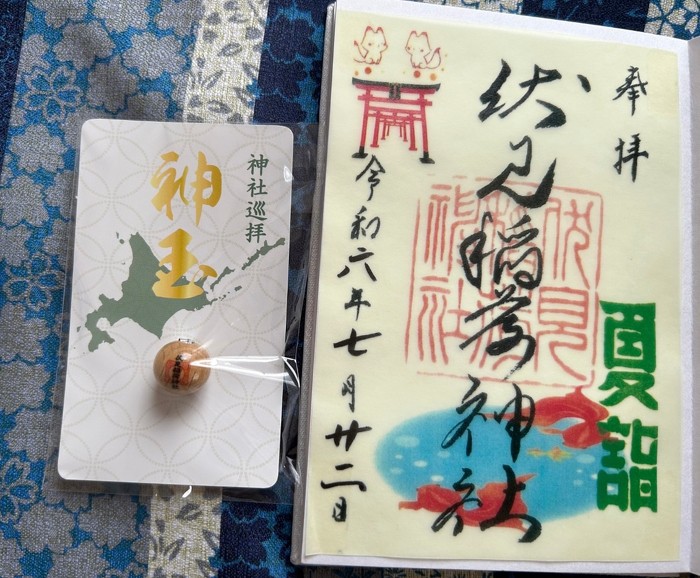 神玉
神社巡拝
奉拝
伏見稲荷神社
伏見
稲荷
神社
夏詣
令和六年七月廿二日